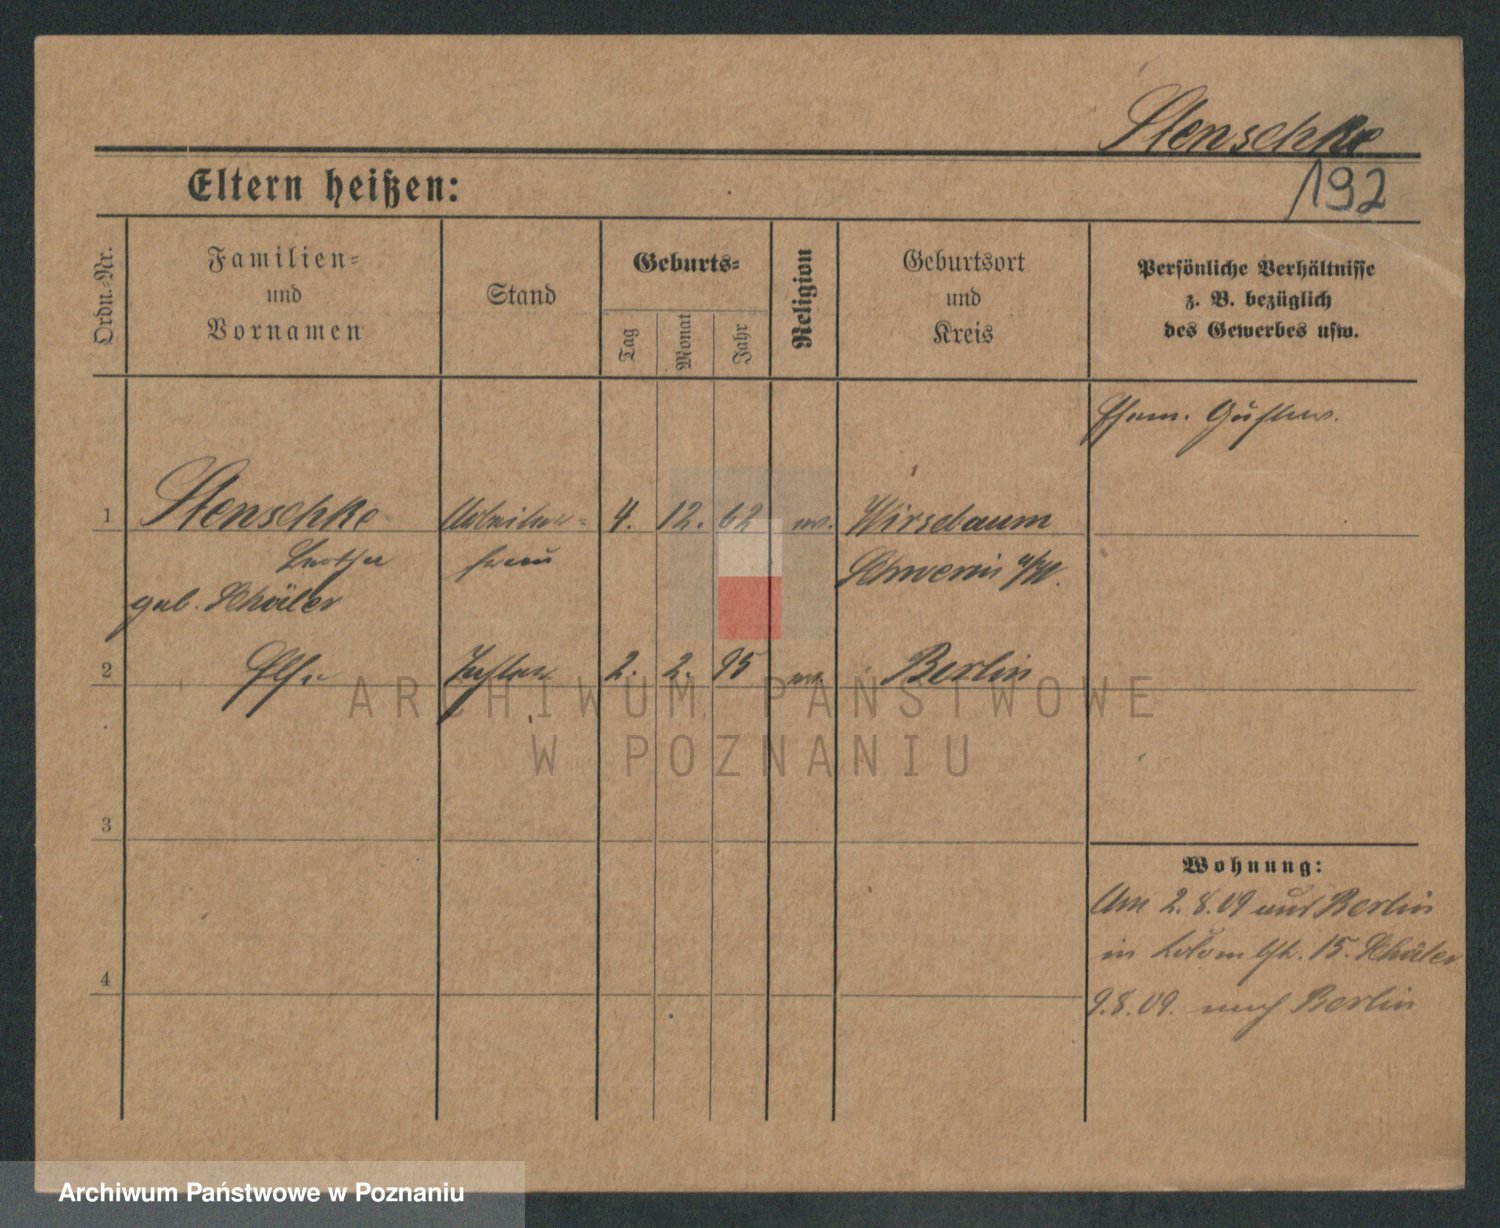 Stenschke
192
Eltern heißen:
Ordn.-Nr.
Familien-
und
Vornamen
Stand
Geburts-
Tag
Monat
Jahr
Religion
Geburtsort
und
Kreis
Persönliche Verhältnisse
z. B. bezüglich
des Gewerbes usw.
Ehem. Gustav.
1 Stenschke Arbeiter- 4. 12. 62 ev. Wirsebaum
frau Schwerin a/W.
geb. Schäler
2 Else Tochter 2. 2. 95 ev. Berlin
3
4
Wohnung:
Am 2.8.09 aus Berlin
in 15. Schäler
9.8.09. nach Berlin
ARCHIWUM PAŃSTWOWE
W POZNANIU
Archiwum Państwowe w Poznaniu